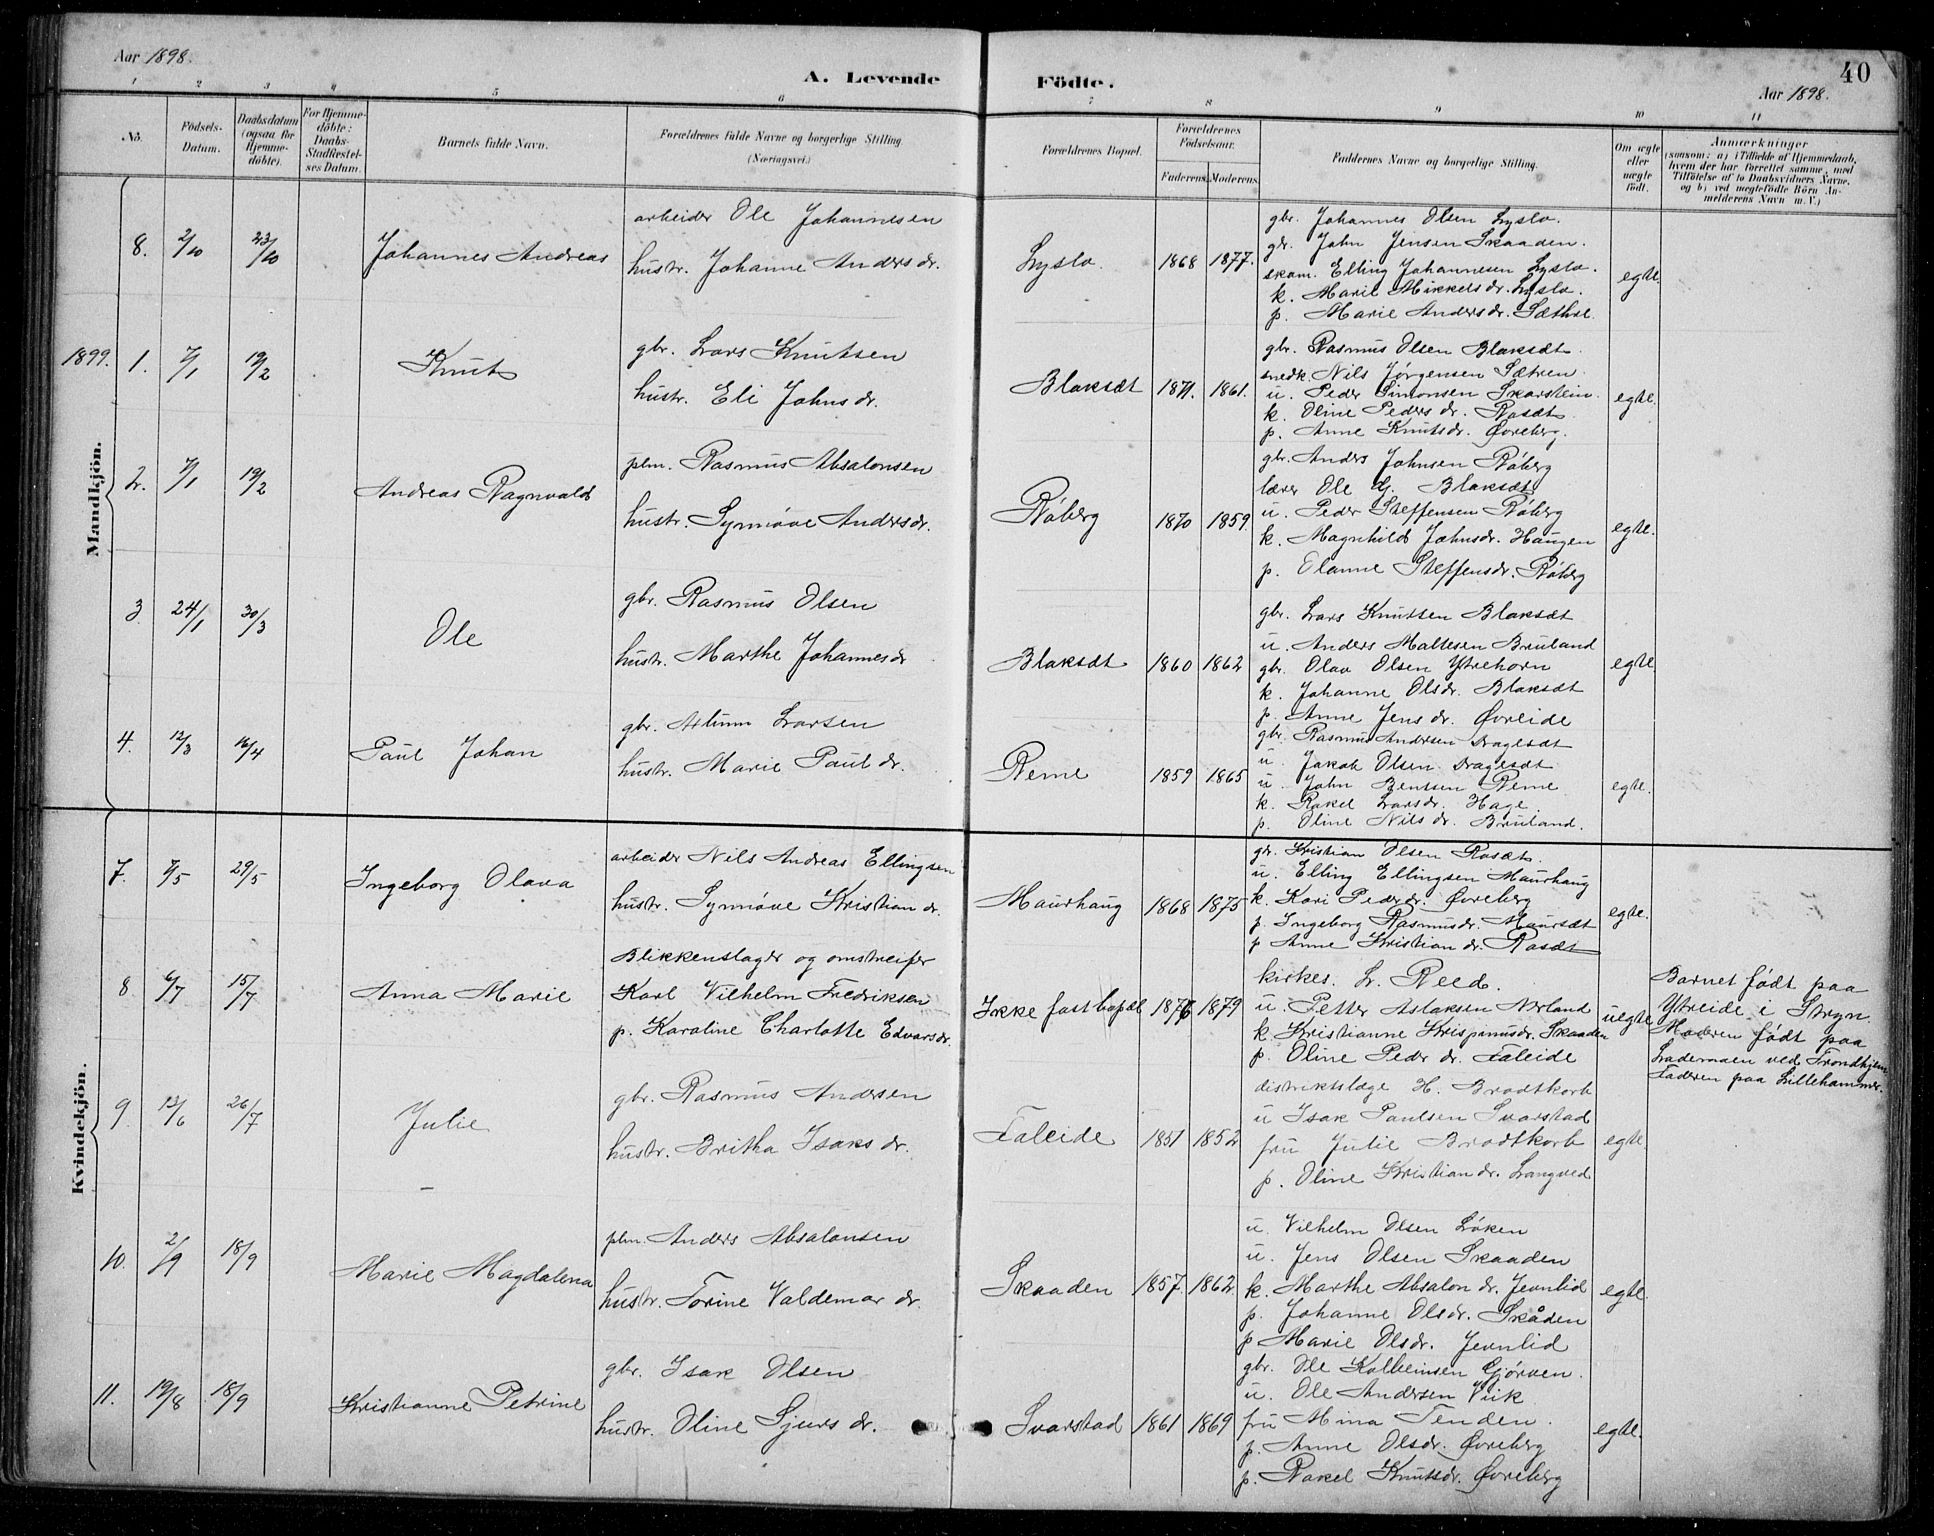 Aar 1898.
A. Levende Födte.
40
Aar 1898.
1 2 3 4 5 6 7 8 9 10 11
No. Födsels-Datum. Daabsdatum (ogsaa for Hjemme-döbte). For Hjemme-döbte: Daabs-Stadfæstel-ses Datum. Barnets fulde Navn. Forældrenes fulde Navne og borgerlige Stilling (Næringsvei.) Forældrenes Bopæl. Forældrenes Födselsaar. Faderens. Moderens. Faddernes Navne og borgerlige Stilling. Om ægte eller uægte födt. Anmærkninger (saasom: a) i Tilfælde af Hjemmedaab, hvem der har forrettet samme, med Tilföielse af to Daabsvidners Navne, og b) ved uægtefödte Börn An-melderens Navn m. V.)
Mandkjön.
8. 2/10 23/10 Johannes Andreas
arbeider Ole Johannesen
hustr. Johanne Andersdr.
Lyslo. 1868 1877.
gbr. Johannes Olsen Lyslo.
gr. John Jensen Skaaden.
skom. Elling Johannesen Lyslo.
k. Marie Mikkelsdr. Lyslo.
p. Marie Andersdr. Sæthre.
egte.
1899. 1. 7/1 19/2 Knut
gbr. Lars Knutsen
hustr. Eli Johnsdr.
Blaksæt 1871. 1861.
gbr. Rasmus Olsen Blaksæt.
snedk. Nils Jørgensen Sætren.
u. Peder Simonsen Skarstein.
k. Oline Pedersdr. Rasæt
p. Anne Knutsdr. Øvreberg.
egte.
2. 7/1 19/2 Andreas Ragnvald
plm. Rasmus Absalonsen
hustr. Synnøve Andersdr.
Røberg 1870 1859.
gbr. Anders Johnsen Røberg
lærer Ole G. Blaksæt
u. Peder Steffensen Røberg
k. Magnhild Johnsdr. Haugen
p. Olanne Steffensdr. Røberg
egte.
3. 24/1 30/3 Ole
gbr. Rasmus Olsen
hustr. Marthe Johannesdr
Blaksæt 1860 1862
gbr. Lars Knutsen Blaksæt
u. Anders Maltesen Bruland
gbr. Olav Olsen Ytrehorn
k. Johanne Olsdr. Blaksæt
p. Anne Jensdr. Øvreide
egte
4. 12/3 16/4 Paul Johan
gbr. Larsen
hustr. Marie Pauldr.
Reme 1859 1865
gbr. Rasmus Andersen Drageset
u. Jakob Olsen Drageset
u. John Bentsen Reme
k. Rakel Larsdr. Hage.
p. Oline Nilsdr. Bruland.
egte.
Kvindekjön.
7. 7/5 29/5 Ingeborg Olava
arbeider Nils Andreas Ellingsen
hustr. Synnøve Kristiandr.
Maurhaug 1868 1875
gr. Kristian Olsen Rasæt.
u. Elling Ellingsen Maurhaug
k. Kari Pederdr. Øvreberg
p. Ingeborg Rasmusdr. Maursæt
p. Anne Kristiandr. Rasæt
egte.
8. 6/7 15/7 Anna Marie
Blikkenslager og omstreifer
Karl Vilhelm Fredriksen
p. Karoline Charlotte Edvarsdr.
Ikke fast bopæl 1876 1879
kirkes. L. Reed.
u. Petter Aslaksen Nærland
k. Kristianne Krispinusdr. Skaaden
p. Oline Pederdr. Faleide
uegte
Barnet født paa
Ytreide i Stryn.
Moderen født paa
Lademoen ved Trondhjem
Faderen paa Lillehammer.
9. 13/6 26/7 Julie
gbr. Rasmus Andersen
hustr. Britha Isaksdr.
Faleide 1851 1852
distriktslæge H. Brodtkorb
u Isak Paulsen Svarstad
fru Julie Brodtkorb
p. Oline Kristiandr. Langved
egte.
10. 2/9 18/9 Marie Magdalena
plm. Anders Absalonsen
hustr. Torine Valdemardr.
Skaaden 1857. 1862
u. Vilhelm Olsen Løken
u. Jens Olsen Skaaden
k. Marthe Absalondr. Jevnlid
p. Johanne Olsdr. Skåden
p Marie Olsdr. Jevnlid
egte.
11. 19/8 18/9 Kristianne Petrine
gbr. Isak Olsen
hustr. Oline Sjursdr.
Svarstad 1861 1869
gbr. Ole Kolbeinsen Gjørven.
u. Ole Andersen Vik
fru Mina Tenden.
p. Anne Olsdr. Øvreberg
p. Rakel Knutsdr. Øvreberg
egte.